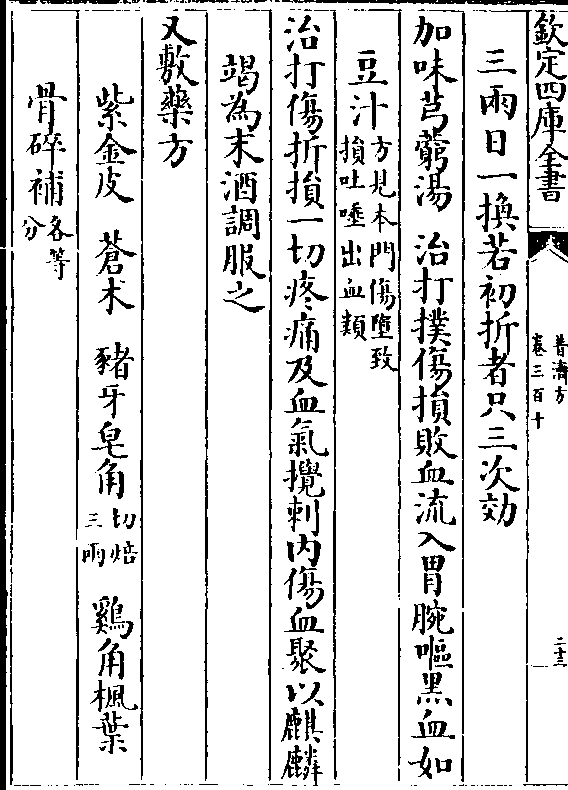 欽定四庫全書
普濟方
卷三百十
二十三
三兩日一換若初折者只三次効
加味芎藭湯　治打撲傷損敗血流入胃腕嘔黑血如
豆汁方見本門傷墮致損吐唾出血類
治打傷折損一切疼痛及血氣攪刺内傷血聚以麒麟
竭為末酒調服之
又敷藥方
紫金皮　蒼术　豬牙皂角切焙三兩　鷄角楓葉
骨碎補各等分